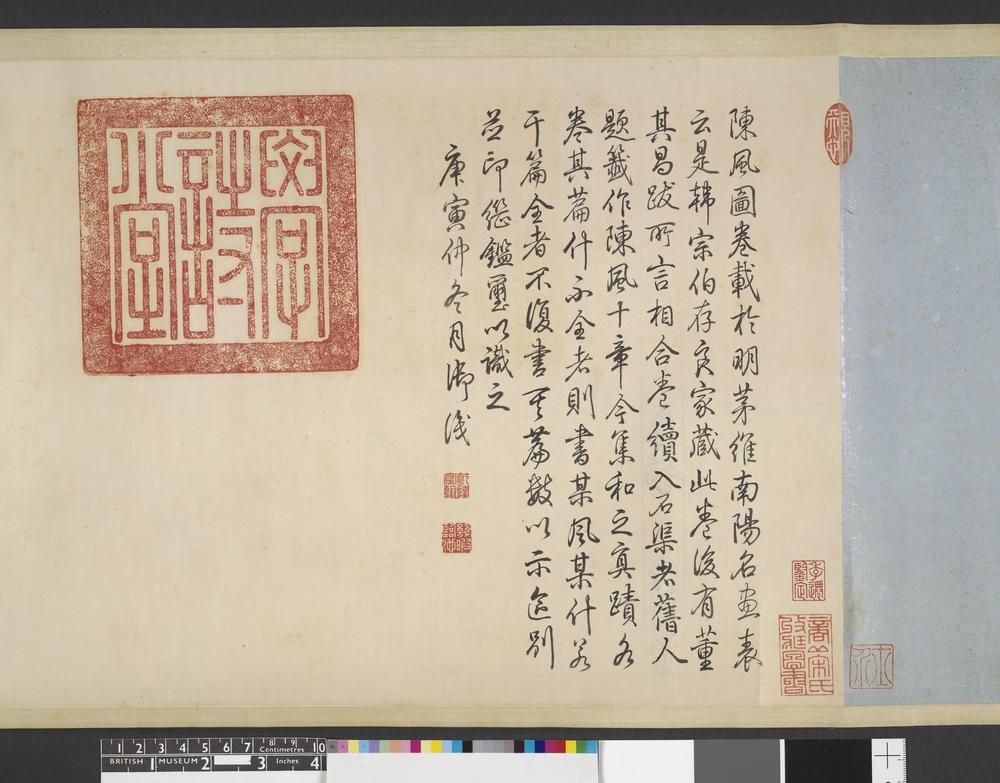 陳風圖卷載於明茅維南陽名畫表
云是韓宗伯存良家藏此卷後有董
其昌跋所言相合卷續入石渠者舊人
題籤作陳風十章今集和之真蹟各
卷其篇什不全者則書某風某什若
干篇全者不復書其篇數以示區別
並印繼鑑璽以識之
庚寅仲冬月御識
學詩堂
BRITISH MUSEUM
1 2 3 4 5 6 7 8 9 10
Centimetres
1 2 3 4
Inches